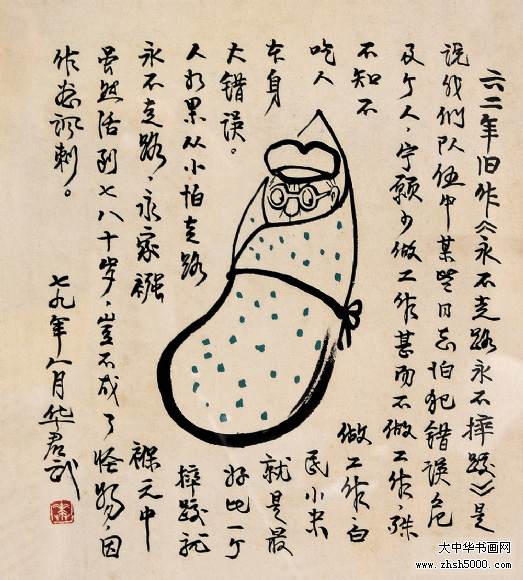 六二年旧作《永不走路永不摔跤》是
说我们队伍中某些同志怕犯错误危
及个人,宁愿少做工作甚而不做工作,殊
不知不做工作白
吃人民小米
本身就是最
大错误。好比一个
人如果从小怕走路摔跤就
永不走路,永襁褓之中
虽然活到七八十岁,岂不成了怪物,因
作讽刺。
七九年八月华君武
大中华书画网
www.zhsh5000.com